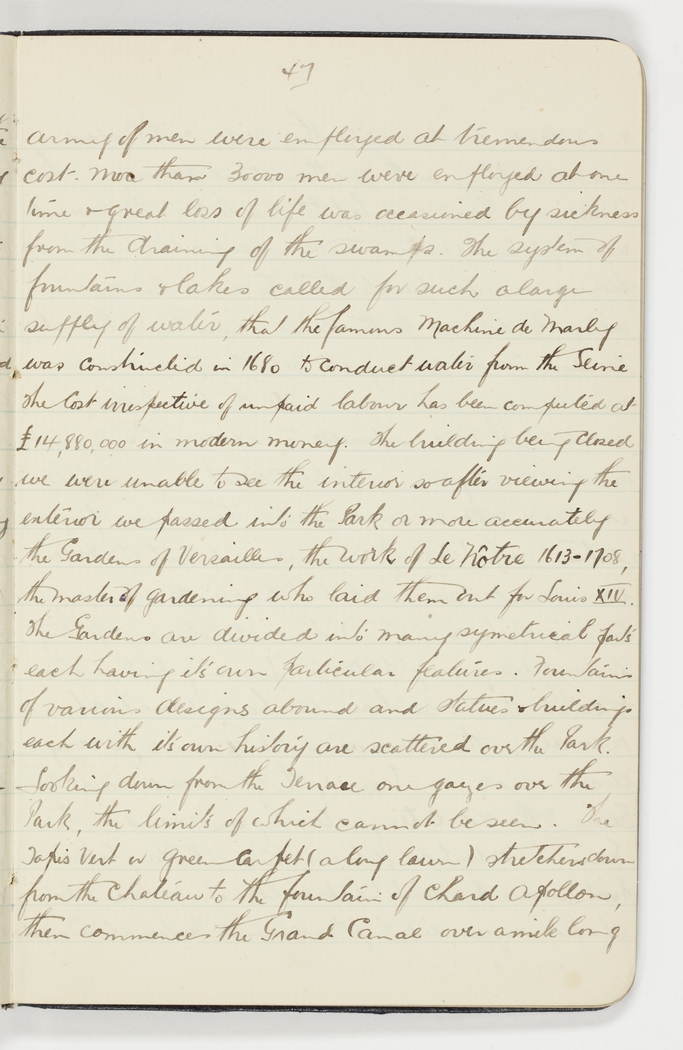 47
army of men were employed at tremendous
cost. More than 30000 men were employed at one
time & great loss of life was occasioned by sickness
from the draining of the swamps. The system of
fountains & lakes called for such a large
supply of water, that the famous Machine de Marly
was constructed in 1680 to conduct water from the Seine
The Cost irrispective of unpaid labour has been computed at
£14,880,000 in modern money. The building being closed
we were unable to see the interior so after viewing the
exterior we passed into the Park or more accurately
the Gardens of Versailles, the work of Le Nôtre 1613-1708,
the master of gardening who laid them out for Louis XIV.
The Gardens are divided into many symetrical parts
each having it's own particular features. Fountains
of various designs abound and statues & buildings
each with it's own history are scattered over the Park.
Looking down from the Terrace one gazes over the
Park, the limits of which cannot be seen. The
Tapis Vert or green carpet (a long lawn) stretches down
from the Chateau to the fountain of Chard Apollon,
then commences the Grand Canal over a mile long